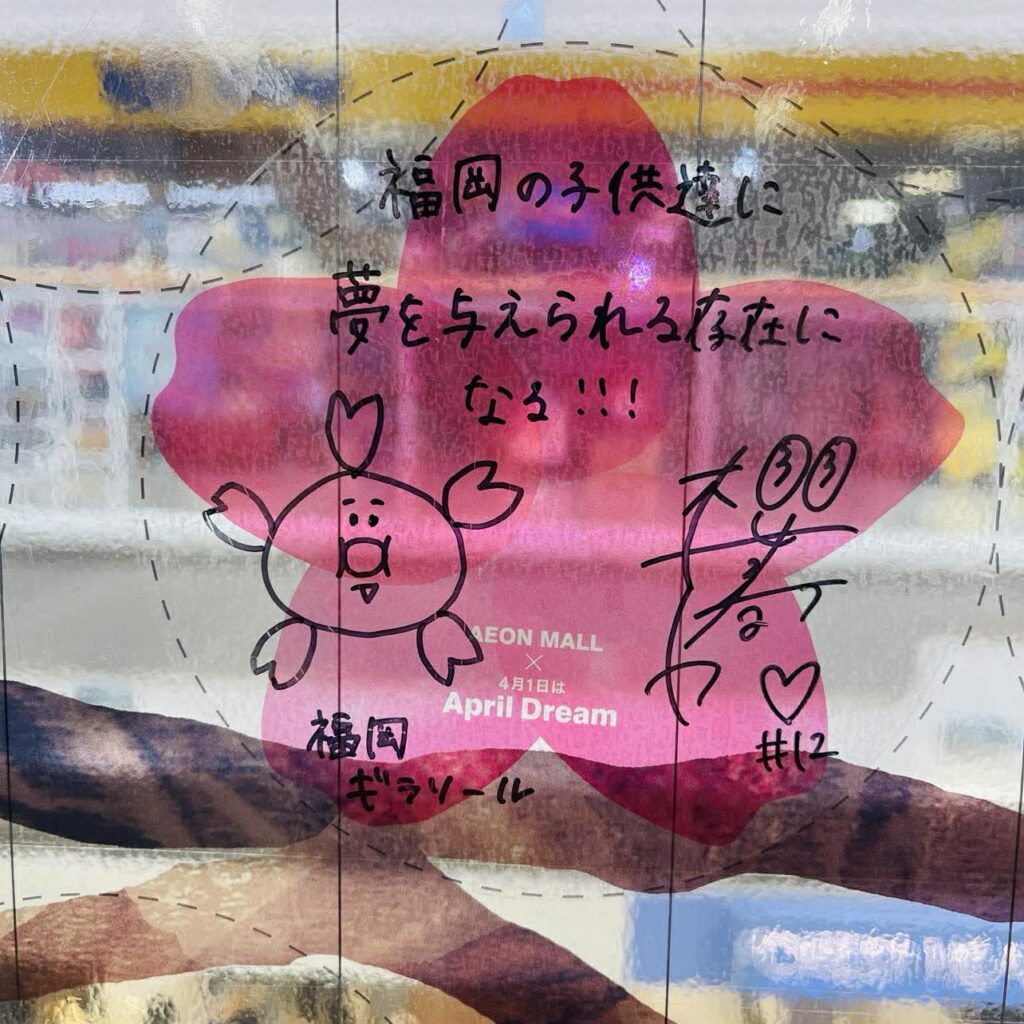 福岡の子供達に
夢を与えられる存在に
なる!!!
AEON MALL
×
4月1日は
April Dream
福岡
ギラソール
#12